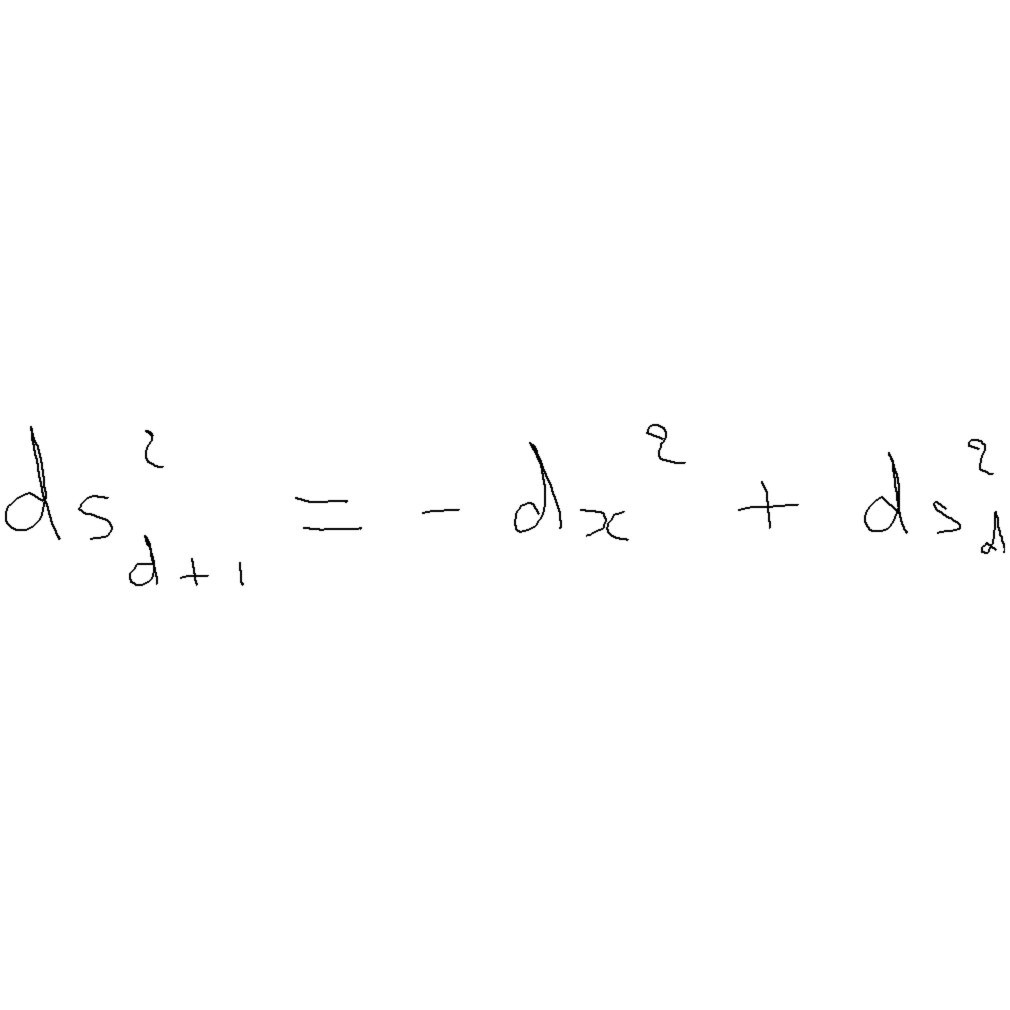 ds_{d+1}^{2} = -dx^{2} + ds_{d}^{2}